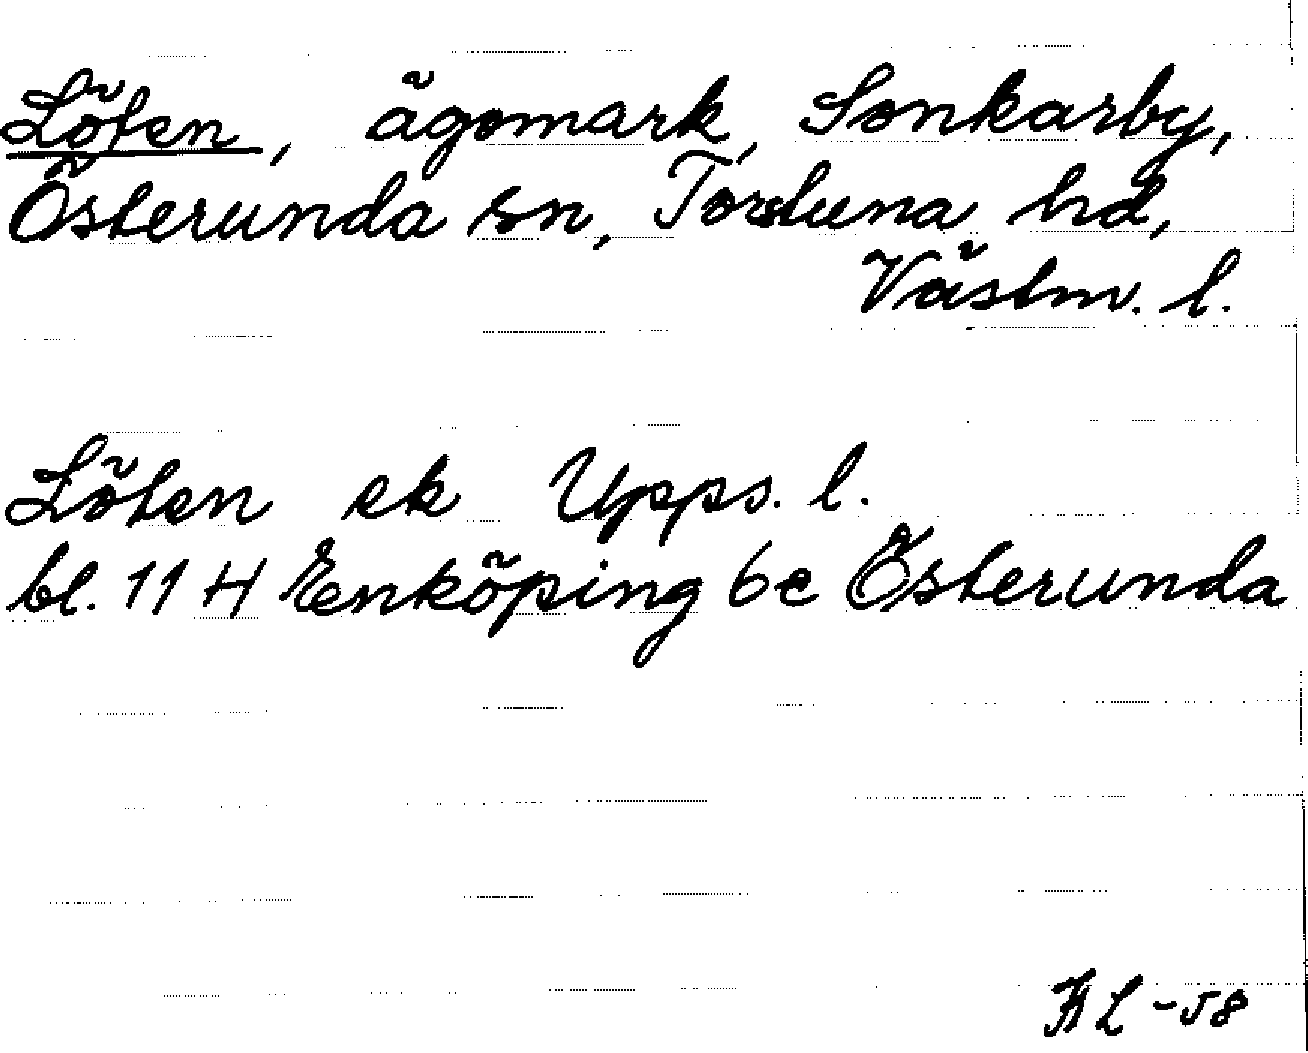 Löten, ägomark, Sonkarby,
Österunda sn, Torstuna hd,
Västm. l.
Löten ek Upps. l.
bl. 11 H Enköping 6e Österunda
HL-58